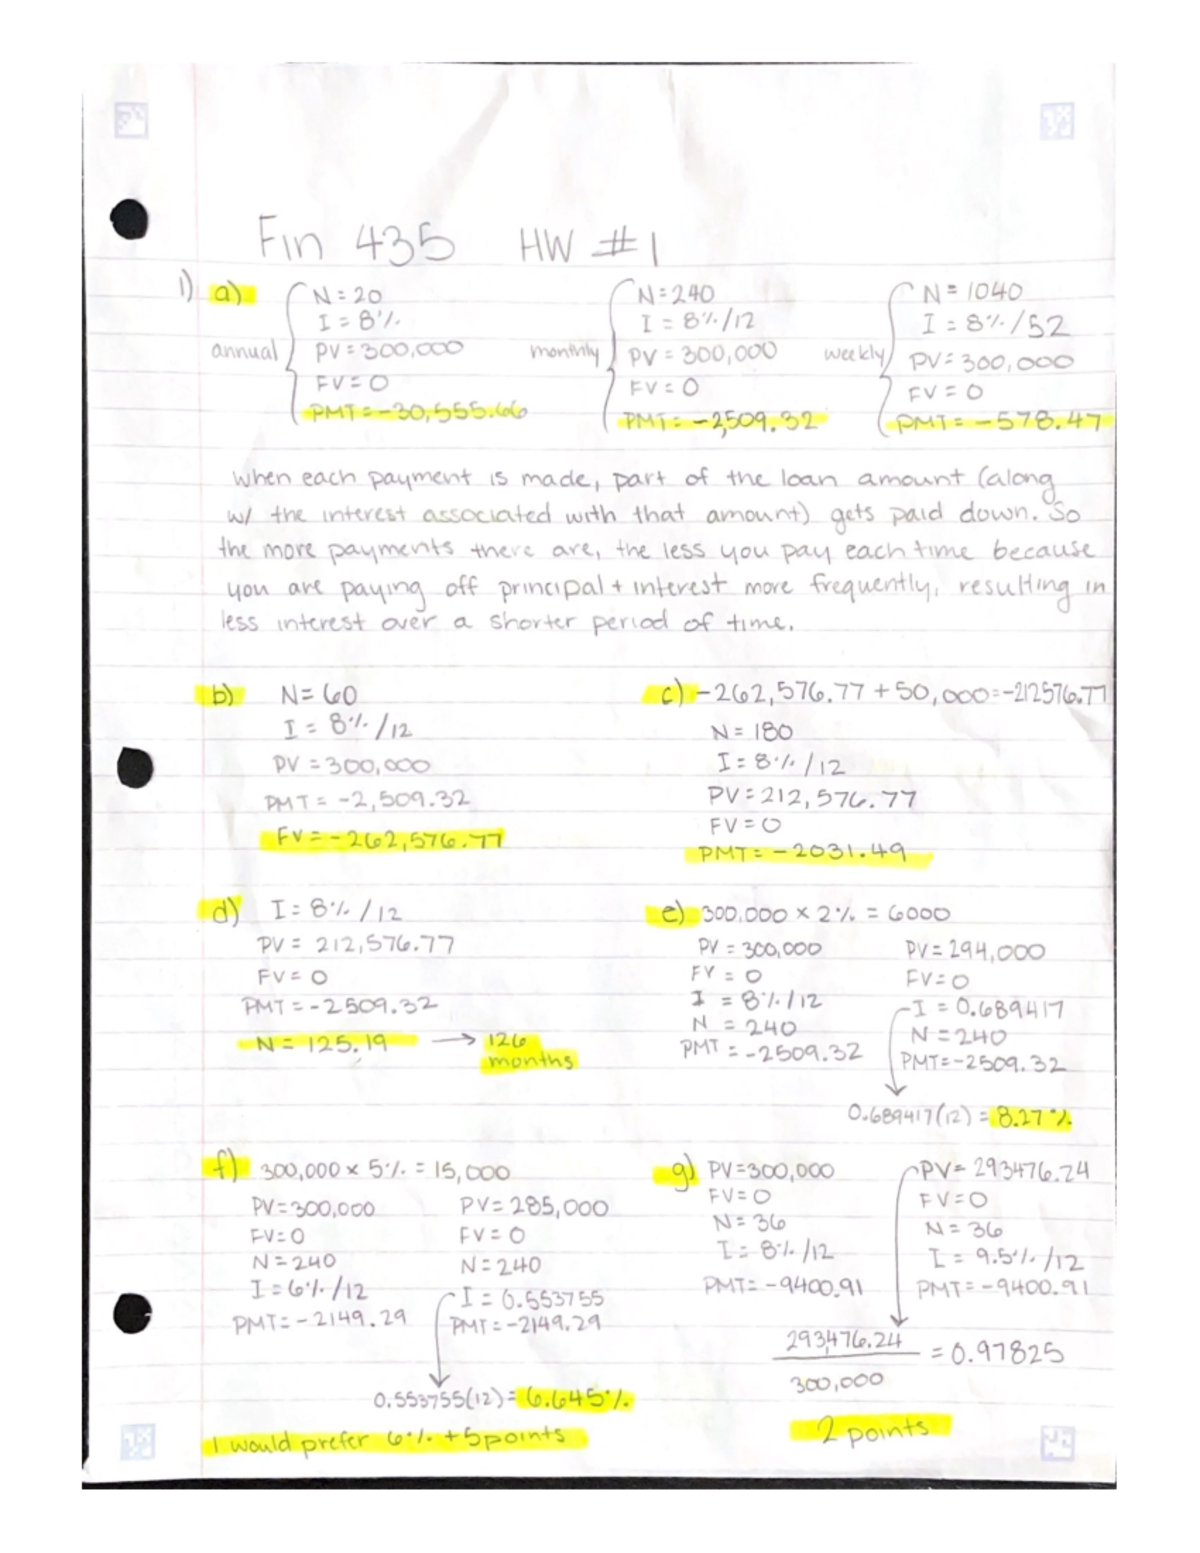 Fin 435 HW #1
1) a)
annual
N = 20
I = 8%
PV = 300,000
FV = 0
PMT = -30,555.66
monthly
N = 240
I = 8%/12
PV = 300,000
FV = 0
PMT = -2,509.32
weekly
N = 1040
I = 8%/52
PV = 300,000
FV = 0
PMT = -578.47
When each payment is made, part of the loan amount (along
w/ the interest associated with that amount) gets paid down. So
the more payments there are, the less you pay each time because
you are paying off principal + interest more frequently, resulting in
less interest over a shorter period of time.
b) N = 60
I = 8%/12
PV = 300,000
PMT = -2,509.32
FV = -262,576.77
c) -262,576.77 + 50,000 = -212576.77
N = 180
I = 8%/12
PV = 212,576.77
FV = 0
PMT = -2031.49
d) I = 8%/12
PV = 212,576.77
FV = 0
PMT = -2509.32
N = 125.19 → 126
months
e) 300,000 × 2% = 6000
PV = 300,000
FV = 0
I = 8%/12
N = 240
PMT = -2509.32
PV = 294,000
FV = 0
I = 0.689417
N = 240
PMT = -2509.32
0.689417(12) = 8.27%
f) 300,000 × 5% = 15,000
PV = 300,000
FV = 0
N = 240
I = 6%/12
PMT = -2149.29
PV = 285,000
FV = 0
N = 240
I = 0.553755
PMT = -2149.29
0.553755(12) = 6.645%
I would prefer 6% + 5 points
g) PV = 300,000
FV = 0
N = 36
I = 8%/12
PMT = -9400.91
PV = 293476.24
FV = 0
N = 36
I = 9.5%/12
PMT = -9400.91
293,476.24
300,000
= 0.97825
2 points